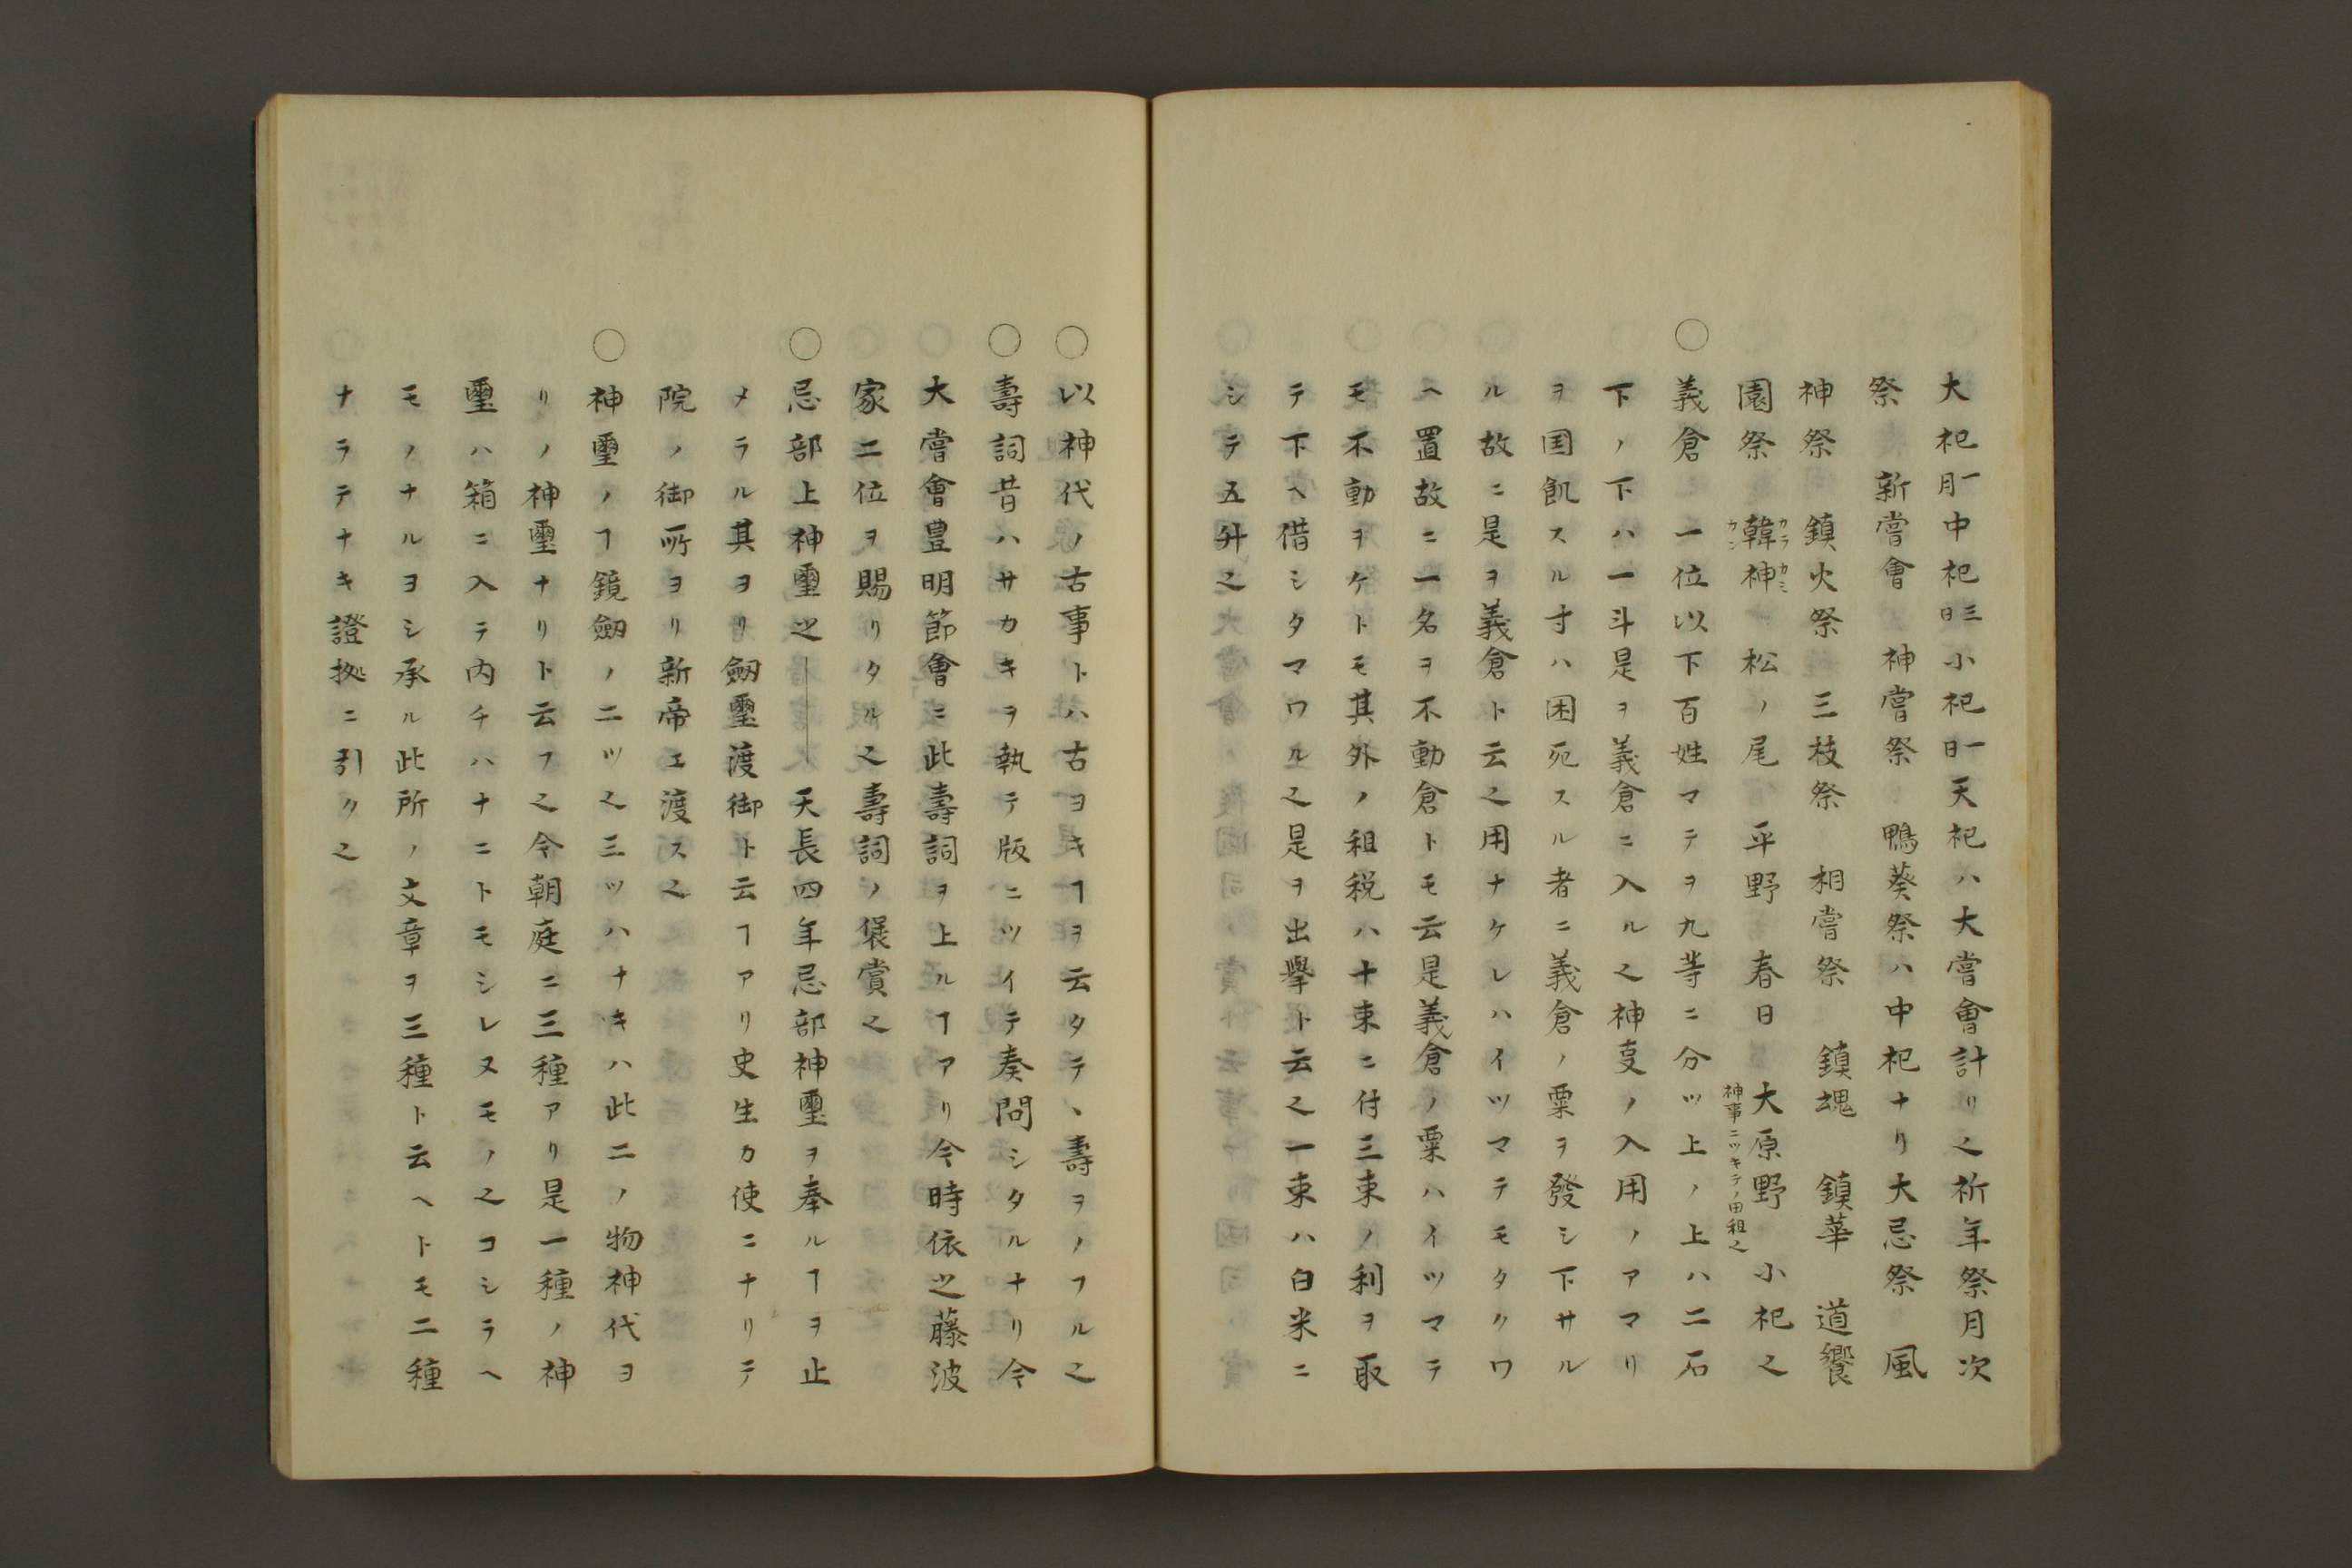 大祀一月中祀三日小祀一日天祀ハ大嘗會計リ之祈年祭月次
祭　新嘗會　神嘗祭　鴨葵祭ハ中祀ナリ大忌祭　風
神祭　鎮火祭　三枝祭　相嘗祭　鎮魂　鎮華　道饗
園祭　韓神　松ノ尾　平野　春日　大原野　小祀之
カラカミ
カン
神事ニツキテノ田租之
○義倉　一位以下百姓マテヲ九等ニ分ツ上ノ上ハ二石
下ノ下ハ一斗是ヲ義倉ニ入ル之神㕝ノ入用ノアマリ
ヲ国飢スル寸ハ困死スル者ニ義倉ノ粟ヲ發シ下サル
ル故ニ是ヲ義倉ト云之用ナケレハイツマテモタクワ
ヘ置故ニ一名ヲ不動倉トモ云是義倉ノ粟ハイツマテ
モ不動ヲケトモ其外ノ租税ハ十束ニ付三束ノ利ヲ取
テ下ヘ借シタマワル之是ヲ出擧ト云之一束ハ白米ニ
シテ五舛之
○以神代ノ古事トハ古ヨキヿヲ云タテヽ壽ヲノフル之
○壽詞昔ハサカキヲ執テ版ニツイテ奏問シタルナリ今
大嘗會豊明節會ニ此壽詞ヲ上ルヿアリ今時依之藤波
家二位ヲ賜リタル之壽詞ノ褒賞之
○忌部上神璽之――天長四年忌部神璽ヲ奉ルヿヲ止
メラル其ヨリ劔璽渡御ト云ヿアリ史生カ使ニナリテ
院ノ御所ヨリ新帝エ渡ス之
○神璽ノヿ鏡劔ノ二ツ之三ツハナキハ此二ノ物神代ヨ
リノ神璽ナリト云フ之令朝庭ニ三種アリ是一種ノ神
璽ハ箱ニ入テ内チハナニトモシレヌモノ之コシラヘ
モノナルヨシ承ル此所ノ文章ヲ三種ト云ヘトモ二種
ナラテナキ證拠ニ引ク之